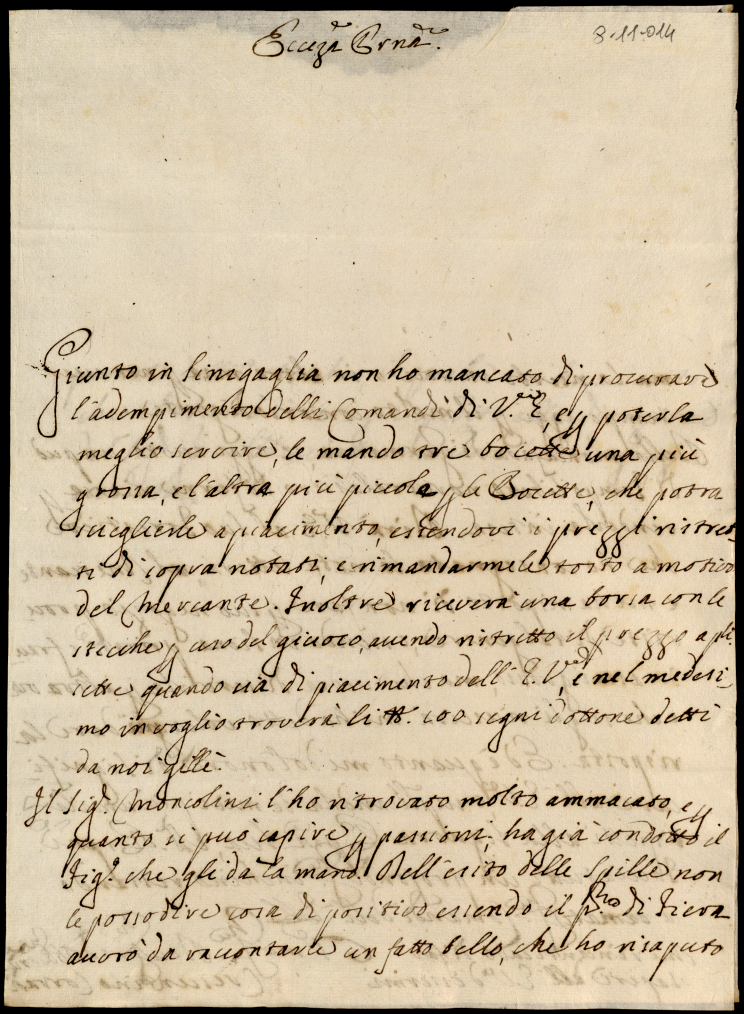 Eccza Prna.
8-11-014
Giunto in Sinigaglia non ho mancato di procurare
l'adempimento delli Comandi di V. E, e p poterla
meglio servire, le mando tre bocette una più
grossa, e l'altra più piccola p le Bocette, che potra
scieglierle a piacimento, essendovi i prezzi ristret-
ti di sopra notati, e rimandarmele tosto a motivo
del Mercante. Inoltre riceverà una borsa con le
stecche p uso del giuoco, avendo ristretto il prezzo a pli
sette quando sia di piacimento dell' E. V, e nel medesi-
mo involglio troverà li 100 segni d'ottone detti
da noi gillè.
Il Sigr. Moncolini l'ho ritrovato molto ammacato, e p
quanto si può capire p passioni, ha già condotto il
Figo. che gli dà la mano. Dell'esito delle Spille non
le posso dire cosa di positivo essendo il pro di Fiera
avrò da raccontarle un fatto bello, che ho risaputo